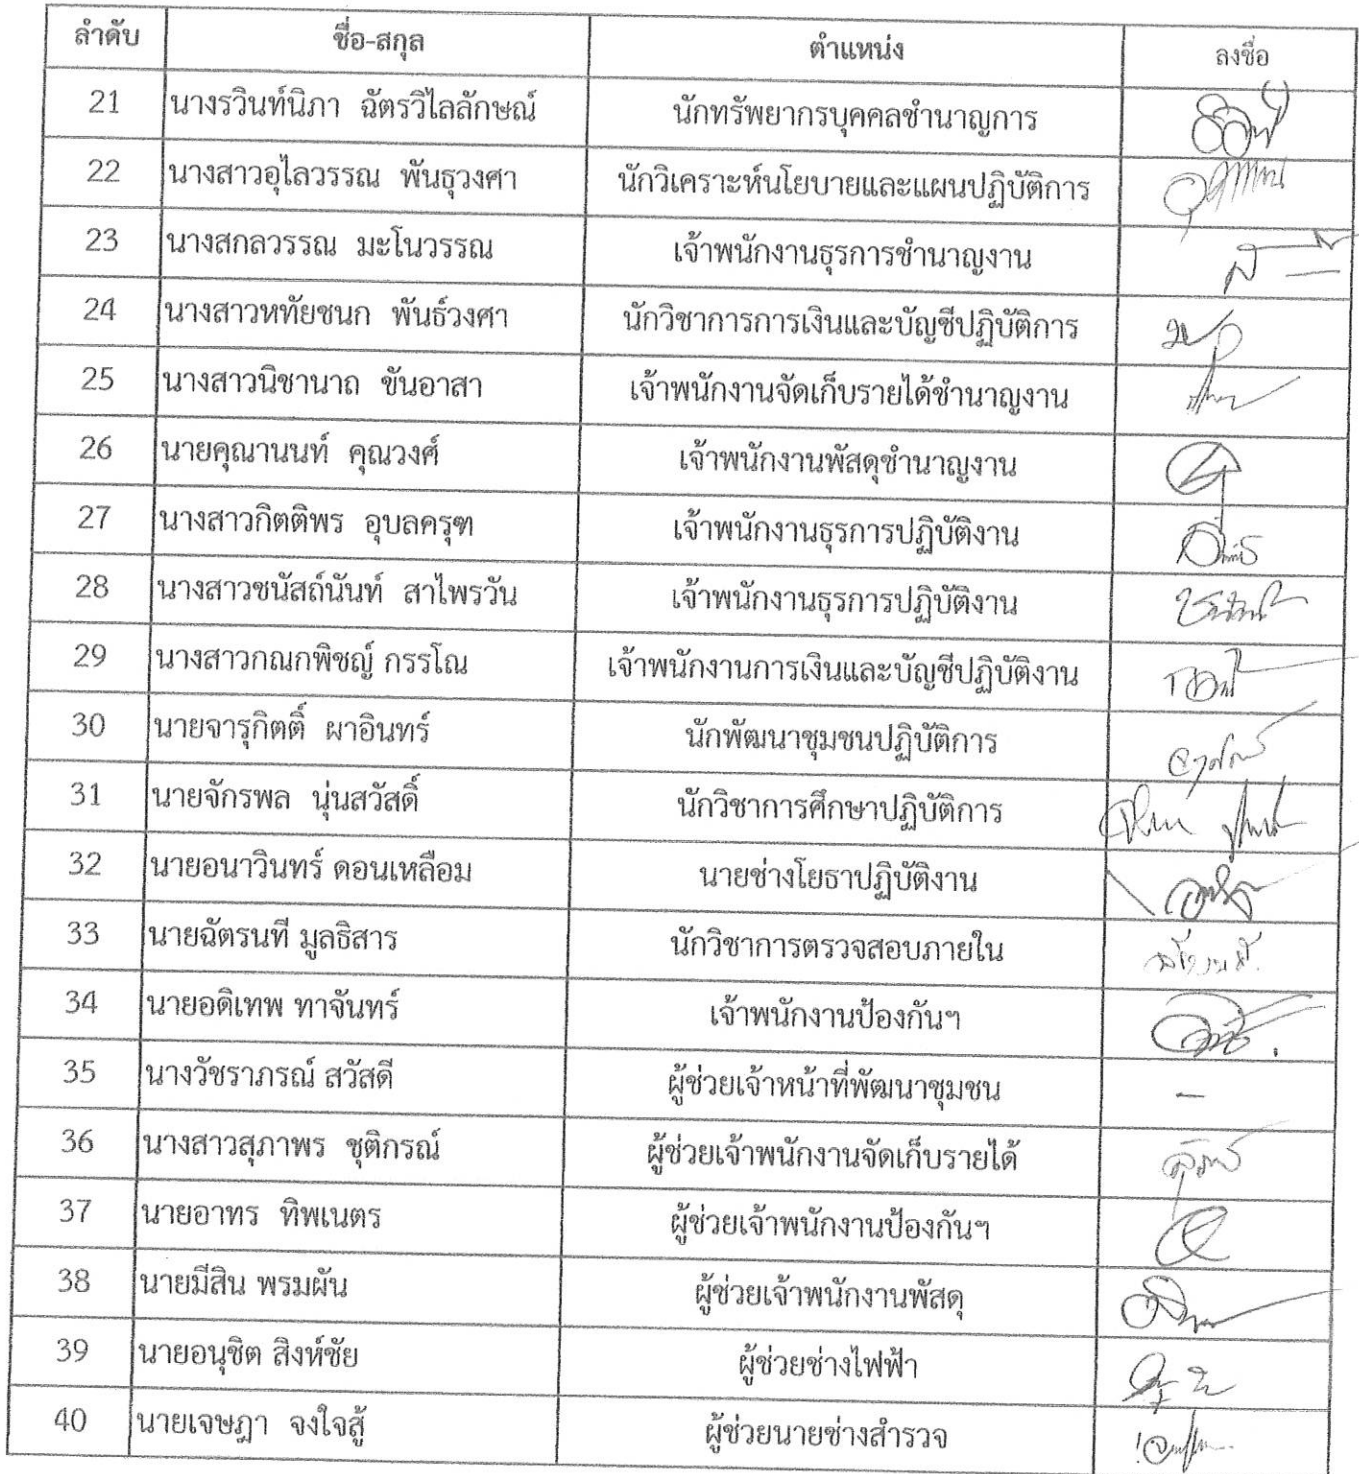 ลำดับ ชื่อ-สกุล ตำแหน่ง ลงชื่อ
21 นางรวินท์นิภา ฉัตรวิไลลักษณ์ นักทรัพยากรบุคคลชำนาญการ
22 นางสาวอุไลวรรณ พันธุวงศา นักวิเคราะห์นโยบายและแผนปฏิบัติการ
23 นางสกลวรรณ มะโนวรรณ เจ้าพนักงานธุรการชำนาญงาน
24 นางสาวหทัยชนก พันธ์วงศา นักวิชาการการเงินและบัญชีปฏิบัติการ
25 นางสาวนิชานาถ ขันอาสา เจ้าพนักงานจัดเก็บรายได้ชำนาญงาน
26 นายคุณานนท์ คุณวงศ์ เจ้าพนักงานพัสดุชำนาญงาน
27 นางสาวกิตติพร อุบลครุฑ เจ้าพนักงานธุรการปฏิบัติงาน
28 นางสาวชนัสถ์นันท์ สาไพรวัน เจ้าพนักงานธุรการปฏิบัติงาน
29 นางสาวกณกพิชญ์ กรรโณ เจ้าพนักงานการเงินและบัญชีปฏิบัติงาน
30 นายจารุกิตติ์ ผาอินทร์ นักพัฒนาชุมชนปฏิบัติการ
31 นายจักรพล นุ่นสวัสดิ์ นักวิชาการศึกษาปฏิบัติการ
32 นายอนาวินทร์ ดอนเหลือม นายช่างโยธาปฏิบัติงาน
33 นายฉัตรนที มูลธิสาร นักวิชาการตรวจสอบภายใน
34 นายอดิเทพ ทาจันทร์ เจ้าพนักงานป้องกันฯ
35 นางวัชราภรณ์ สวัสดี ผู้ช่วยเจ้าหน้าที่พัฒนาชุมชน -
36 นางสาวสุภาพร ชุติกรณ์ ผู้ช่วยเจ้าพนักงานจัดเก็บรายได้
37 นายอาทร ทิพเนตร ผู้ช่วยเจ้าพนักงานป้องกันฯ
38 นายมีสิน พรมผัน ผู้ช่วยเจ้าพนักงานพัสดุ
39 นายอนุชิต สิงห์ชัย ผู้ช่วยช่างไฟฟ้า
40 นายเจษฎา จงใจสู้ ผู้ช่วยนายช่างสำรวจ